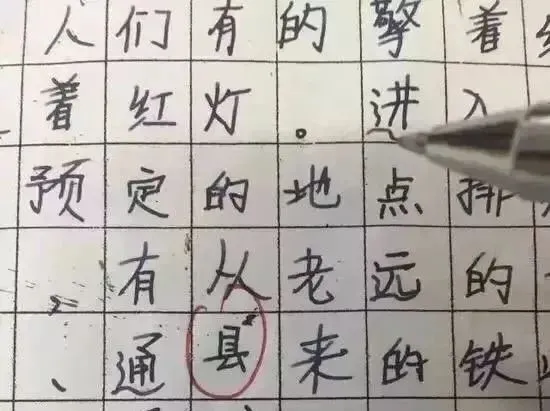 人们有的擎着
着红灯。进入
预定的地点排
,有从老远的
、通县来的铁